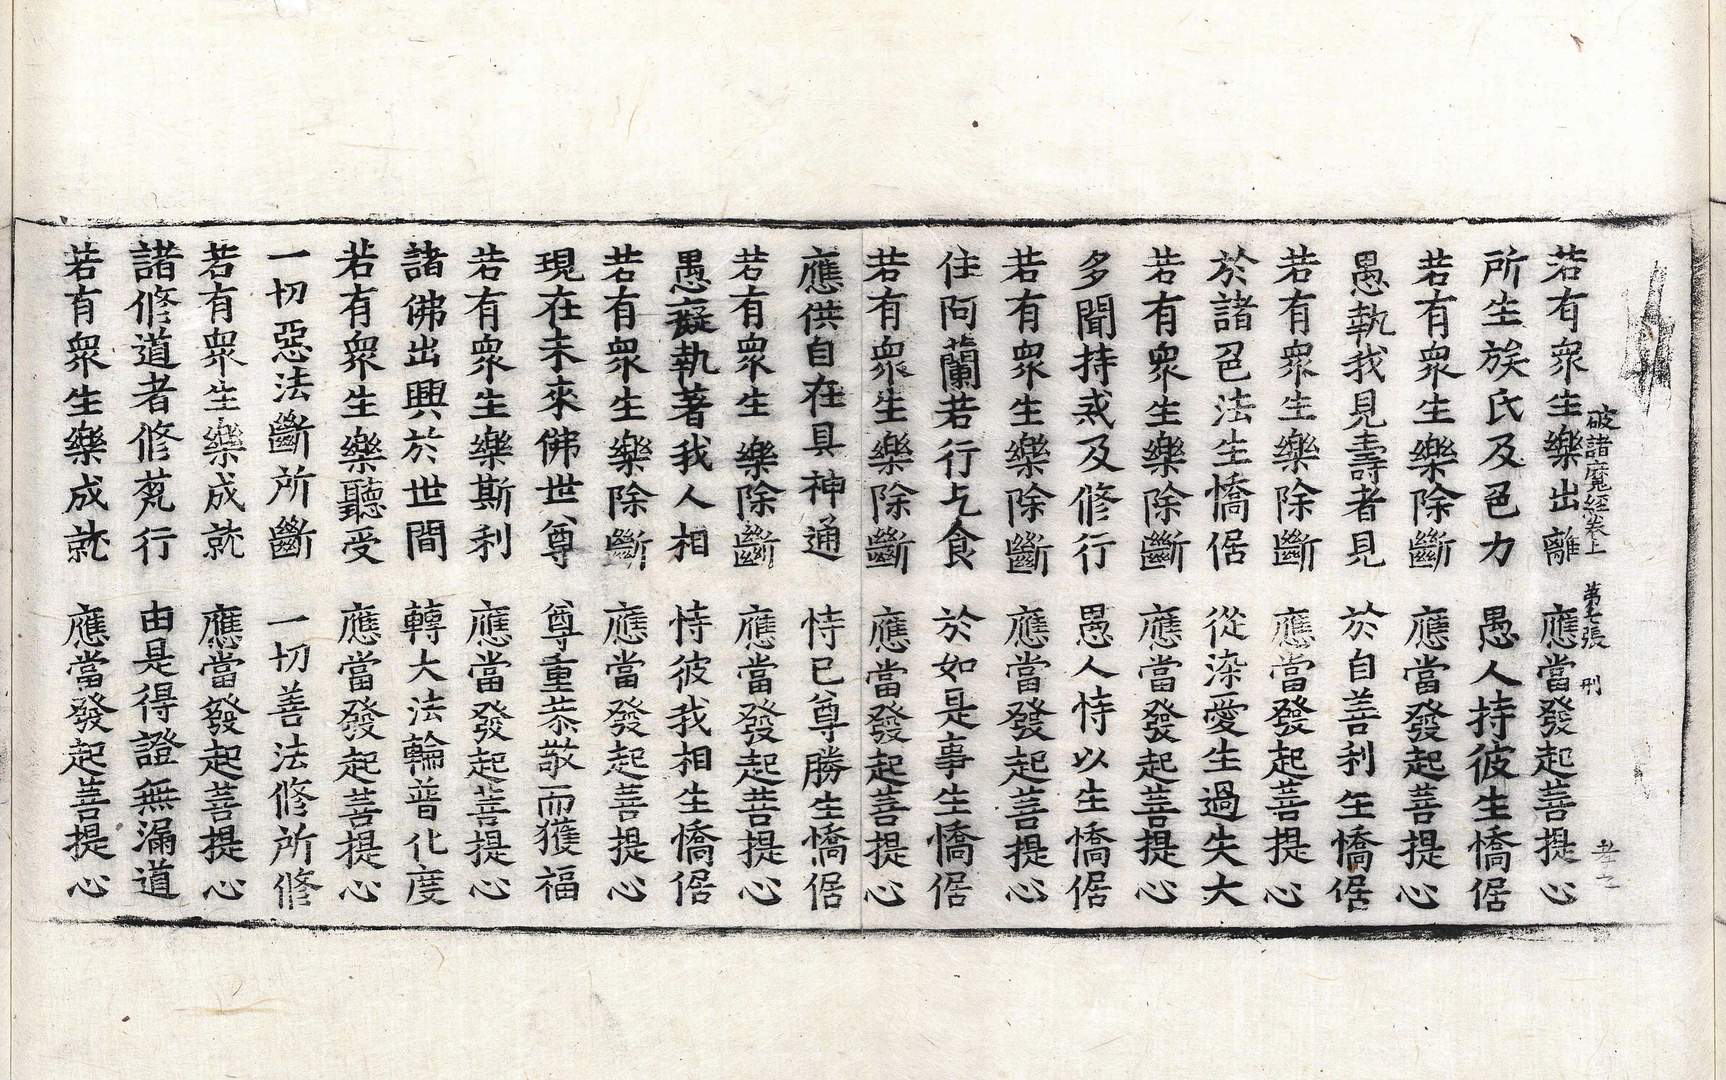 破諸魔經卷上 第七張 刑
若有衆生樂出離 應當發起菩提心
所生族氏及邑力 愚人持彼生憍倨
若有衆生樂除斷 應當發起菩提心
愚執我見壽者見 於自善利生憍倨
若有衆生樂除斷 應當發起菩提心
於諸邑法生憍倨 從染愛生過失大
若有衆生樂除斷 應當發起菩提心
多聞持戒及修行 愚人恃以生憍倨
若有衆生樂除斷 應當發起菩提心
住阿蘭若行乞食 於如是事生憍倨
若有衆生樂除斷 應當發起菩提心
應供自在具神通 恃已尊勝生憍倨
若有衆生樂除斷 應當發起菩提心
愚癡執著我人相 恃彼我相生憍倨
若有衆生樂除斷 應當發起菩提心
現在未來佛世尊 尊重恭敬而獲福
若有衆生樂斯利 應當發起菩提心
諸佛出興於世間 轉大法輪普化度
若有衆生樂聽受 應當發起菩提心
一切惡法斷所斷 一切善法修所修
若有衆生樂成就 應當發起菩提心
諸修道者修梵行 由是得證無漏道
若有衆生樂成就 應當發起菩提心